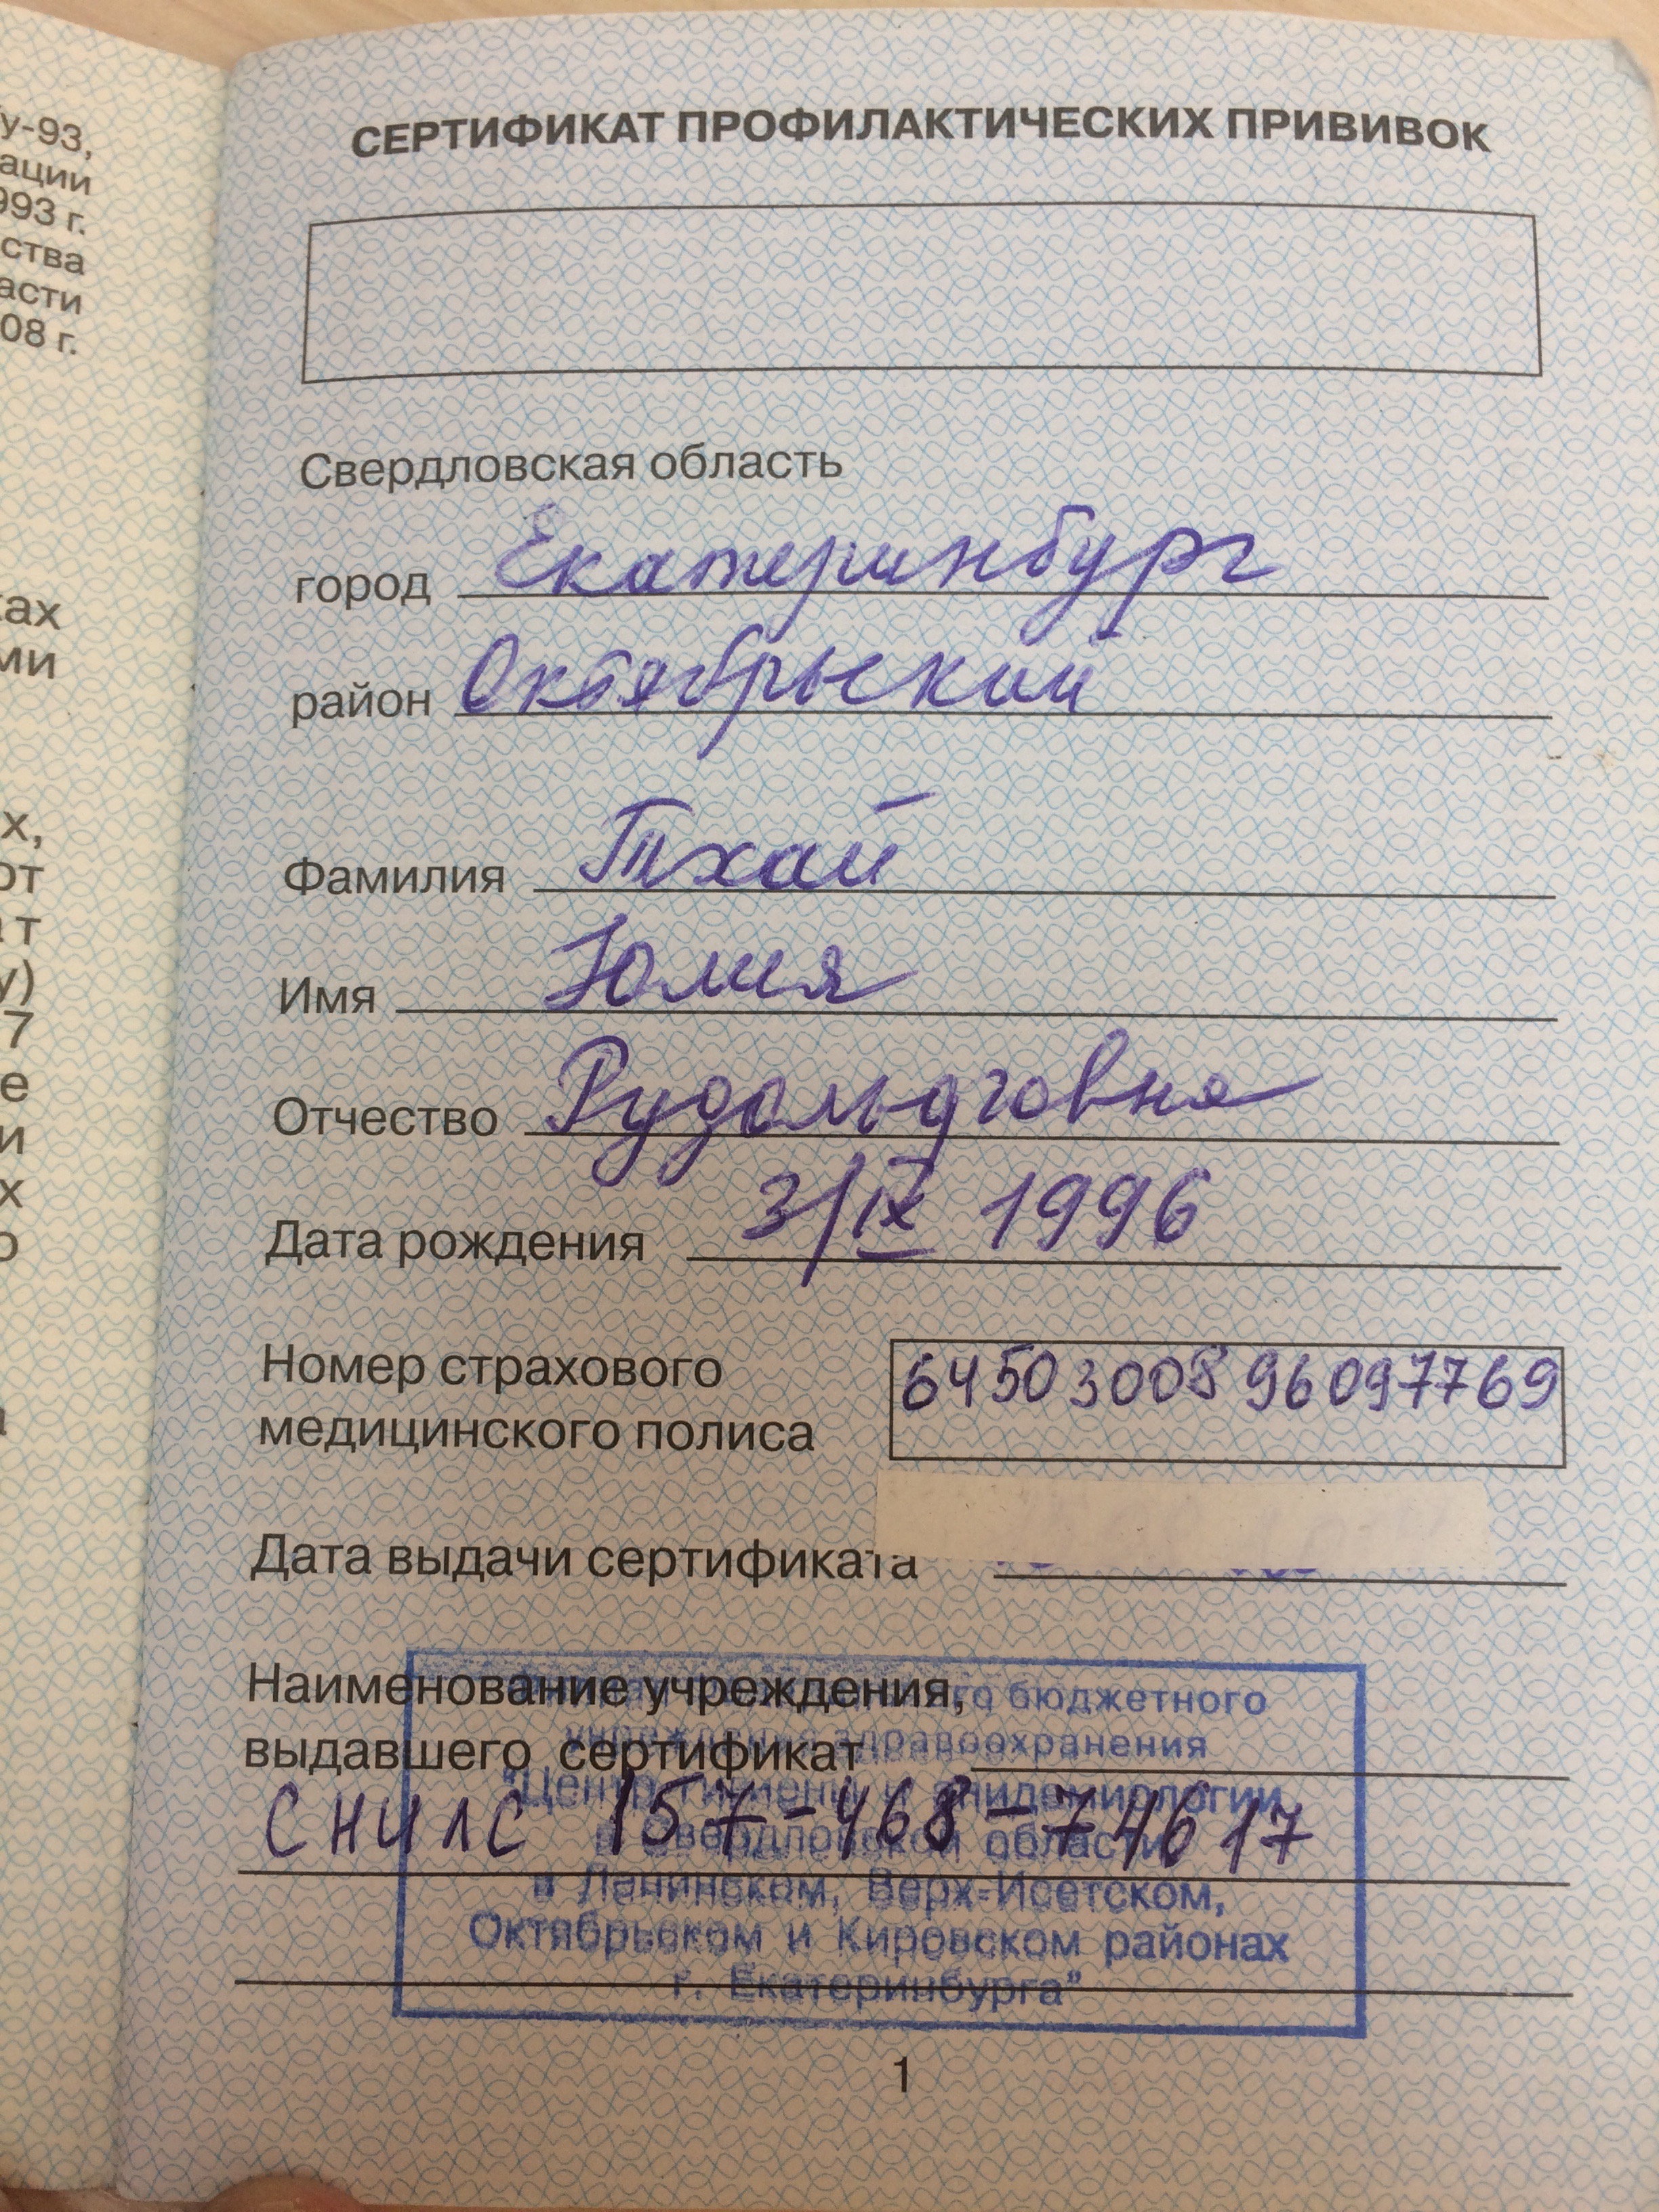 у-93,
ации
993 г.
ства
асти
08 г.
ках
ми
х,
от
ат
у)
7
е
и
х
о
СЕРТИФИКАТ ПРОФИЛАКТИЧЕСКИХ ПРИВИВОК
Свердловская область
город Екатеринбург
район Октябрьский
Фамилия Тхай
Имя Юлия
Отчество Рудольдговна
Дата рождения 3/IX 1996
Номер страхового
медицинского полиса 6450300896097769
Дата выдачи сертификата
Наименование учреждения,
выдавшего сертификат
СНИЛС 157-468-746 17
бюджетного
здравоохранения
"Центр гигиены и эпидемиологии
в Свердловской области
в Ленинском, Верх-Исетском,
Октябрьском и Кировском районах
г. Екатеринбурга"
1